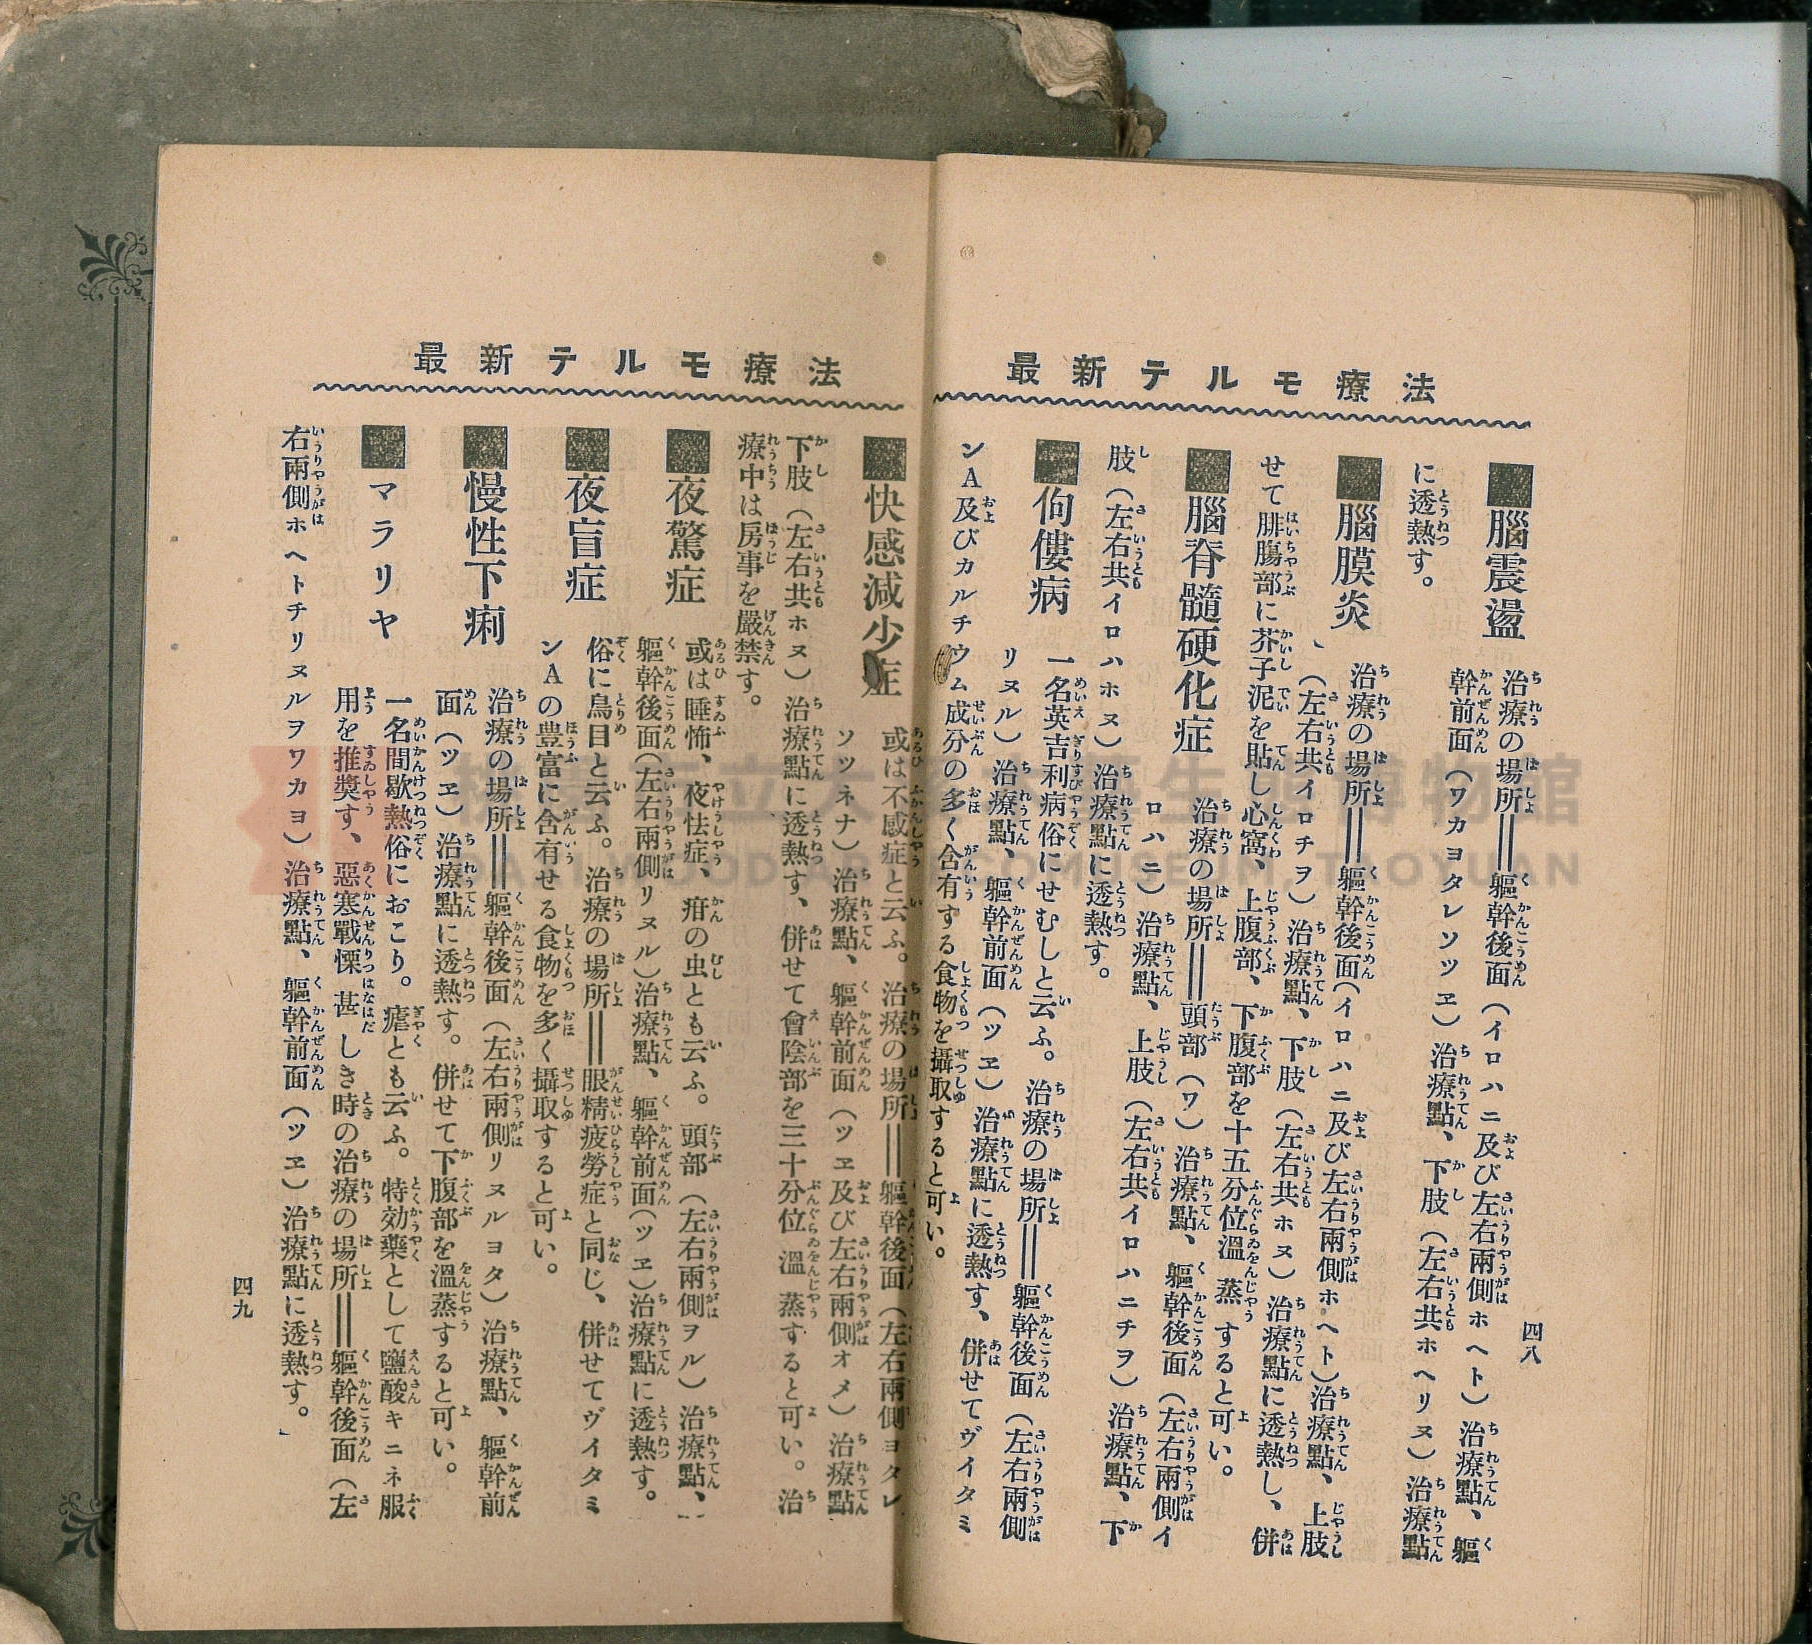 最新テルモ療法
四八
■腦震盪 治療の場所＝＝軀幹後面（イロハニ及び左右兩側ホヘト）治療點、軀
幹前面（ワカヨタレソツヱ）治療點、下肢（左右共ホヘリヌ）治療點
に透熱す。
■腦膜炎 治療の場所＝＝軀幹後面（イロハニ及び左右兩側ホヘト）治療點、上肢
（左右共イロチヲ）治療點、下肢（左右共ホヌ）治療點に透熱し、併
せて腓膓部に芥子泥を貼し心窩、上腹部、下腹部を十五分位溫蒸すると可い。
■腦脊髓硬化症 治療の場所＝＝頭部（ワ）治療點、軀幹後面（左右兩側イ
ロハニ）治療點、上肢（左右共イロハニチヲ）治療點、下
肢（左右共イロハホヌ）治療點に透熱す。
■佝僂病 一名英吉利病俗にせむしと云ふ。治療の場所＝＝軀幹後面（左右兩側
リヌル）治療點、軀幹前面（ツヱ）治療點に透熱す、併せてヴイタミ
ンA及びカルチウム成分の多く含有する食物を攝取すると可い。
最新テルモ療法
■快感減少症 或は不感症と云ふ。治療の場所＝＝軀幹後面（左右兩側ヨタレ
ソツネナ）治療點、軀幹前面（ツヱ及び左右兩側オメ）治療點
下肢（左右共ホヌ）治療點に透熱す、併せて會陰部を三十分位溫蒸すると可い。治
療中は房事を嚴禁す。
■夜驚症 或は睡怖、夜怯症、疳の虫とも云ふ。頭部（左右兩側ヲル）治療點、
軀幹後面（左右兩側リヌル）治療點、軀幹前面（ツヱ）治療點に透熱す。
■夜盲症 俗に鳥目と云ふ。治療の場所＝＝眼精疲勞症と同じ、併せてヴイタミ
ンAの豐富に含有せる食物を多く攝取すると可い。
■慢性下痢 治療の場所＝＝軀幹後面（左右兩側リヌルヨタ）治療點、軀幹前
面（ツヱ）治療點に透熱す。併せて下腹部を溫蒸すると可い。
■マラリヤ 一名間歇熱俗におこり。瘧とも云ふ。特効藥として鹽酸キニネ服
用を推獎す、惡寒戰慄甚しき時の治療の場所＝＝軀幹後面（左
右兩側ホヘトチリヌルヲワカヨ）治療點、軀幹前面（ツヱ）治療點に透熱す。
四九